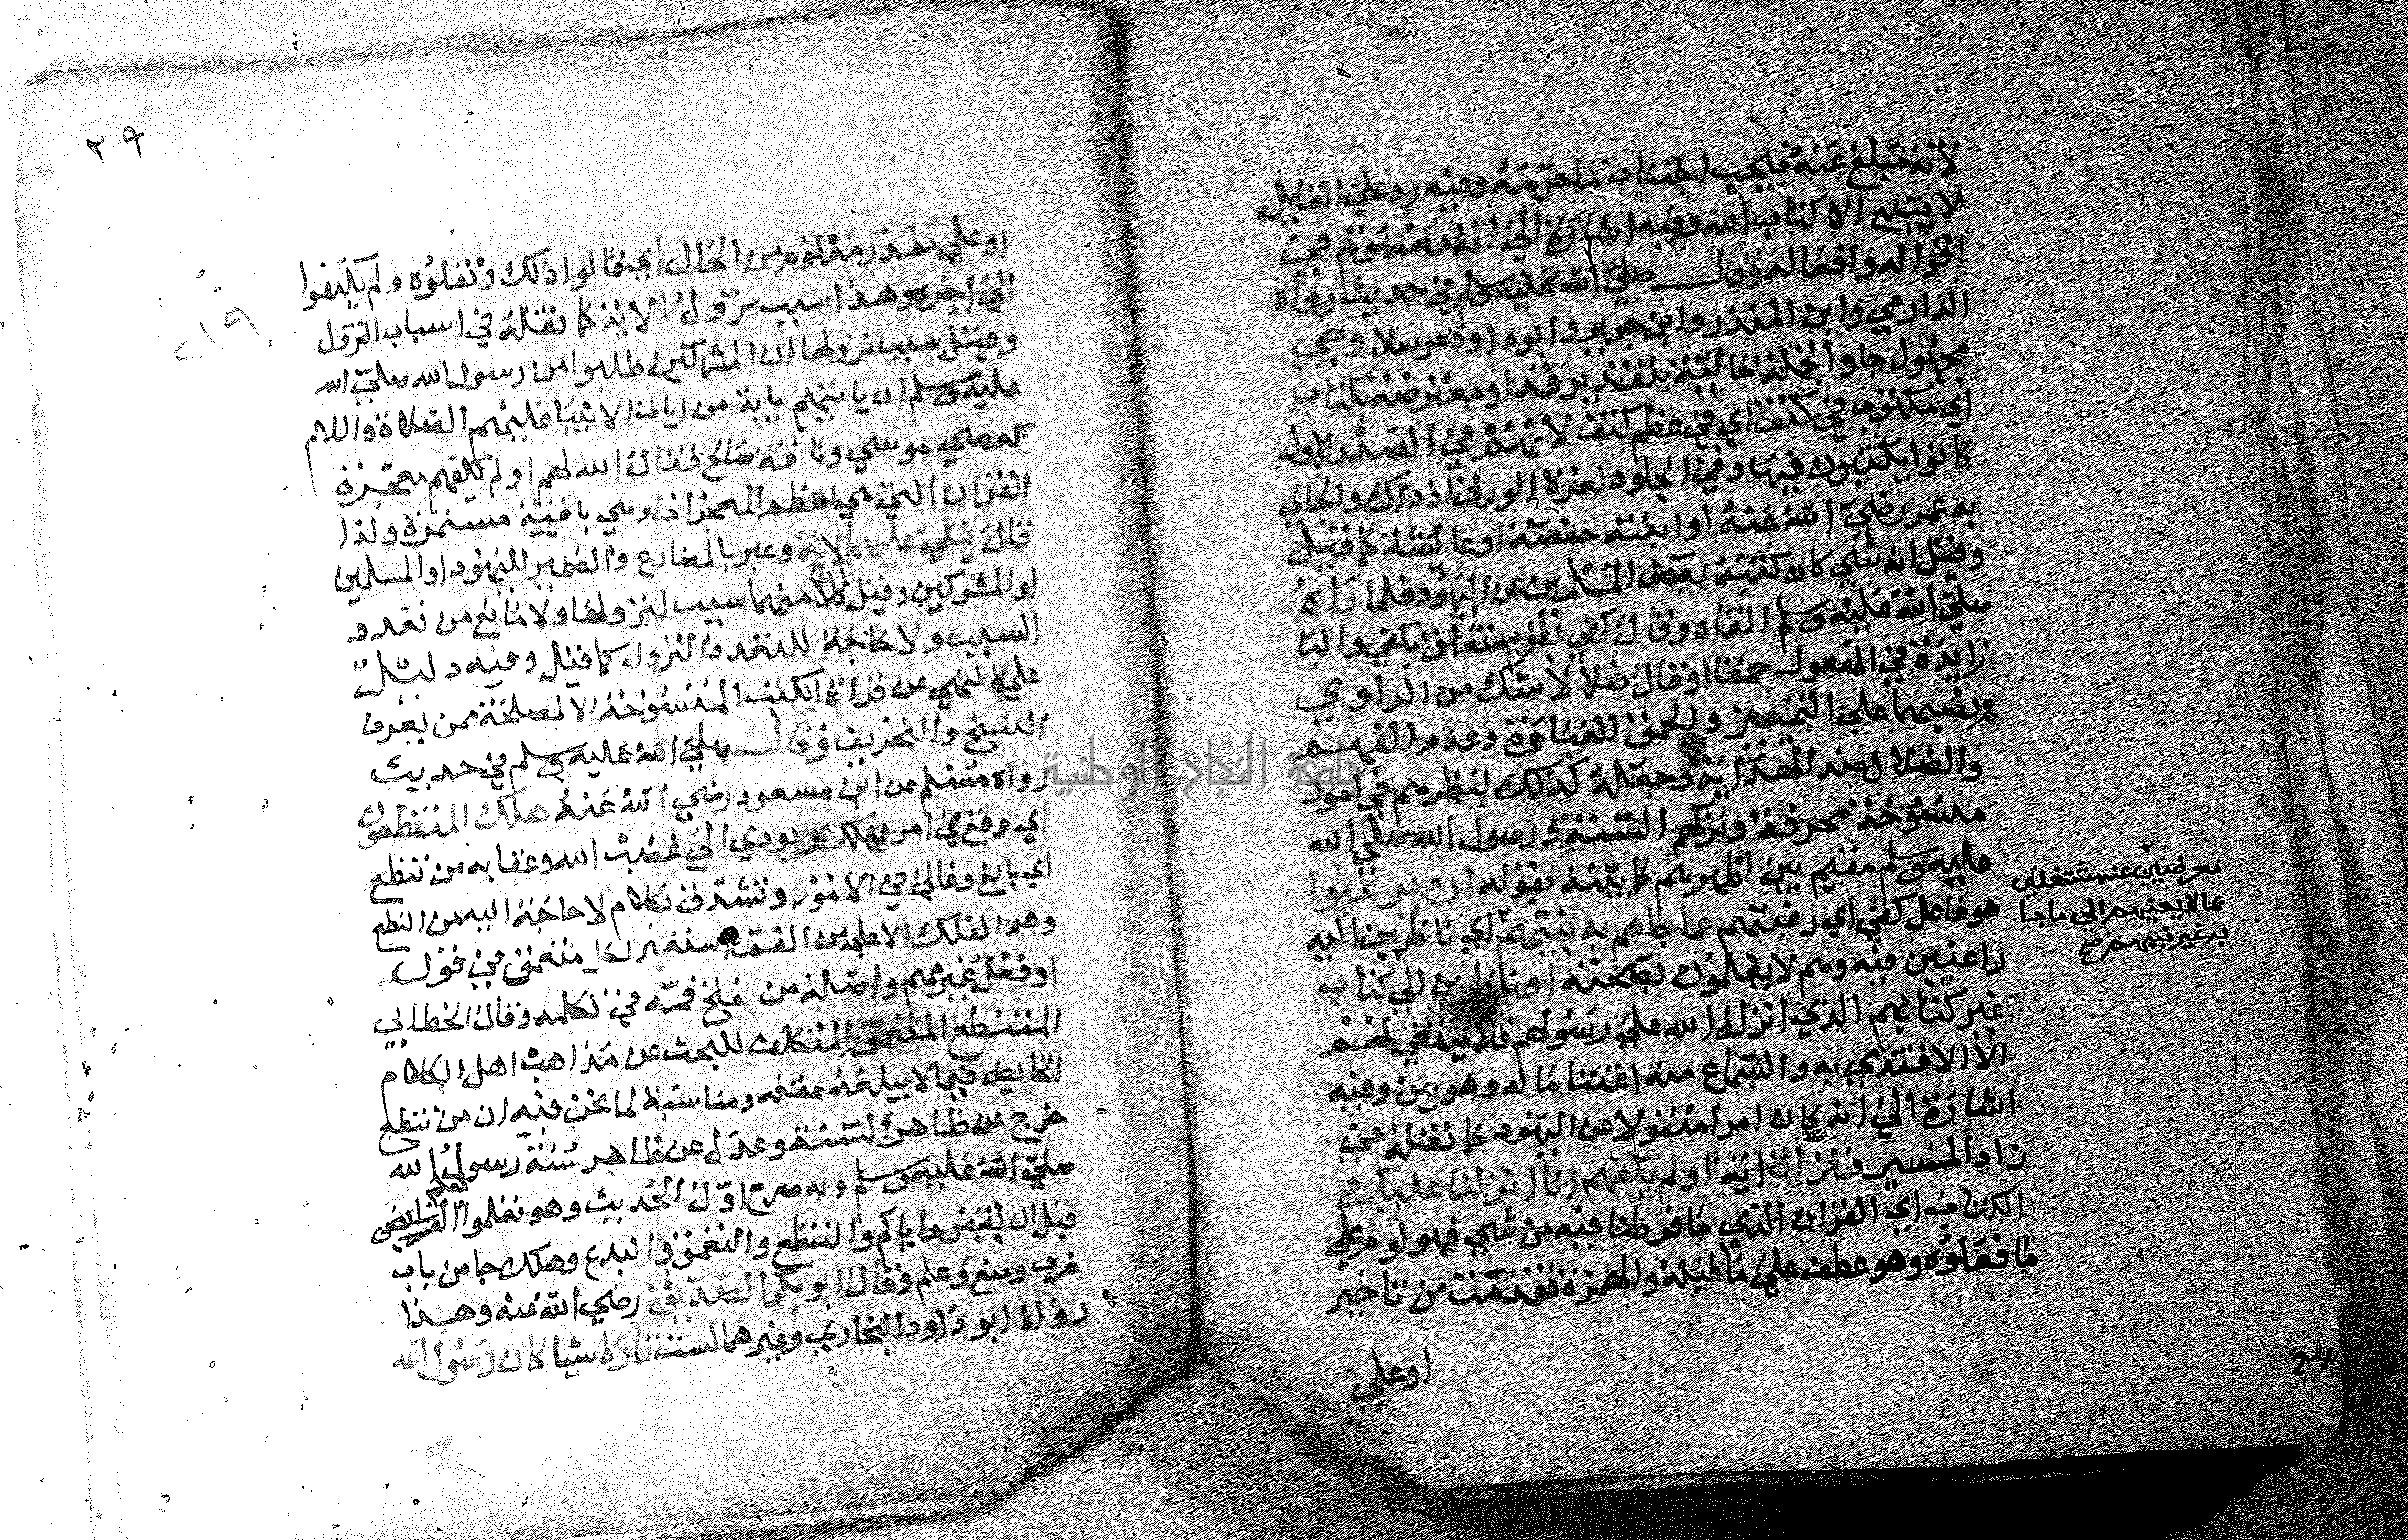 لانه مبلغ عنه فيجب اجتناب ما حرمه وفيه رد علي القايل
لا يتبع الا كتاب الله وفيه اشارة الي انه معصوم في
اقواله وافعاله وقال صلي الله عليه وسلم في حديث رواه
الدارمي وابن المنذر وابن جرير وابو داود مرسلا وجي
مجهول جا والجملة حالية بتقدير قد او معترضة بكتاب
اي مكتوب في كتف اي في عظم كتف لانهم في الصدر الاول
كانوا يكتبون فيها وفي الجلود لعزة الورق اذ ذاك والجاي
به عمر رضي الله عنه او ابنته حفصة او عائشة كما قيل
وقيل انه شي كان كتبه بعض المسلمين عن اليهود فلما راه
صلي الله عليه وسلم القاه وقال كفي بقوم متعلق بكفي والبا
زايدة في المفعول حمقا او قال ضلالا شك من الراوي
ونصبهما علي التمييز والحمق الغباوة وعدم الفهم
والضلال ضد الهداية وجعله كذلك لنظرهم في امور
منسوخة محرفة وتركهم السنة ورسول الله صلي الله
عليه وسلم مقيم بين اظهرهم كما بينه بقوله ان يرغبوا
هو فاعل كفي اي رغبتهم عما جاهم به نبيهم اي ناظرين اليه
راغبين فيه وهم لا يعلمون بصحته او ناظرين الي كتاب
غير كتابهم الذي انزل الله علي رسولهم فلا ينبغي لهم
الا الاقتدي به والسماع منه اغتناما له وهو بين وفيه
اشارة الي انه كان امرا منقولا عن اليهود كما نقله في
زاد المسير فنزلت اية اولم يكفهم انا انزلنا عليك
الكتاب اي القران الذي ما فرطنا فيه من شي فهو لوم علي
ما فعلوه وهو عطف علي ما قبله والهمزة مقدمة من تاخير
معرضين عنه مشتغلين
عما لا يعنيهم الي ما جا
به غير نبيهم صح
او علي
٢٩
٢١٩
او علي تقدر معلوم من الحال اي قالوا ذلك وفعلوه ولم يكتفوا
الي اخره وهذا سبب نزول الاية كما نقله في اسباب النزول
وقيل سبب نزولها ان المشركين طلبوا من رسول الله صلي الله
عليه وسلم ان ياتيهم باية من ايات الانبيا عليهم الصلاة والسلام
كعصي موسي وناقة صالح فقال الله لهم اولم يكفهم معجزة
القران التي هي اعظم المعجزات وهي باقية مستمرة ولذا
قال يتلي عليهم لانه وعبر بالمضارع والضمير لليهود او المسلمين
او المشركين وقيل كلا منهما سبب لنزولها ولا مانع من تعدد
السبب ولا حاجة للتعدد النزول كما قيل وفيه دليل
علي النهي عن قراة الكتب المنسوخة الا لمصلحة ممن يعرف
النسخ والتحريف وقال صلي الله عليه وسلم في حديث
رواه مسلم عن ابن مسعود رضي الله عنه هلك المتنطعون
اي وقع في امر يهلك ويودي الي غضب الله وعقابه من تنطع
اي بالغ وغالي في الامور وتشدق بكلام لا حاجة اليه من النطع
وهو الفلك الاعلي من الفم استعير لكل متعمق في قول
او فعل كغيرهم واصله من فتح فمه في تكلمه وقال الخطابي
المتنطع المتعمق المتكلف للبحث عن مذاهب اهل الكلام
الخايض فيما لا يبلغه عقله ومناسبة لما نحن فيه ان من تنطع
خرج عن ظاهر السنة وعدل عن ظاهر سنة رسول الله
صلي الله عليه وسلم وبه صرح اول الحديث وهو تعلموا العلم
قبل ان يقبض واياكم والتنطع والتعمق والبدع وهلك جا من باب
ضرب ومنع وعلم وقال ابو بكر الصديق رضي الله عنه وهذا
رواه ابو داود البخاري وغيرهما لست تاركا شيا كان رسول الله
جامعة النجاح الوطنية